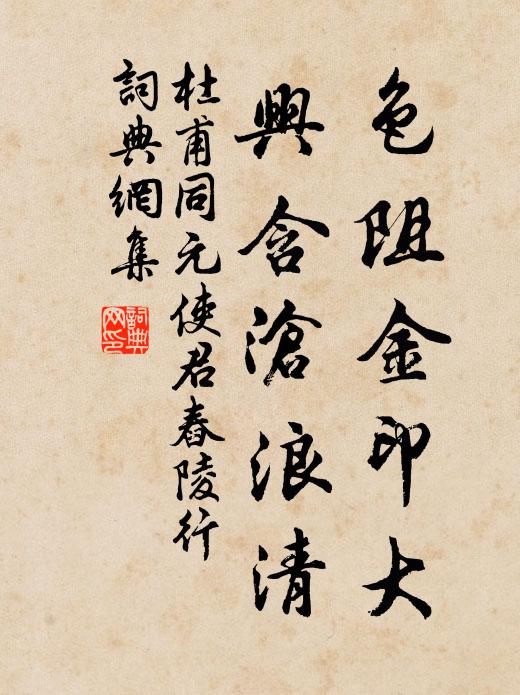 色阻金印大
興含滄浪清
杜甫同元使君舂陵行
詞典網集
詞典网印